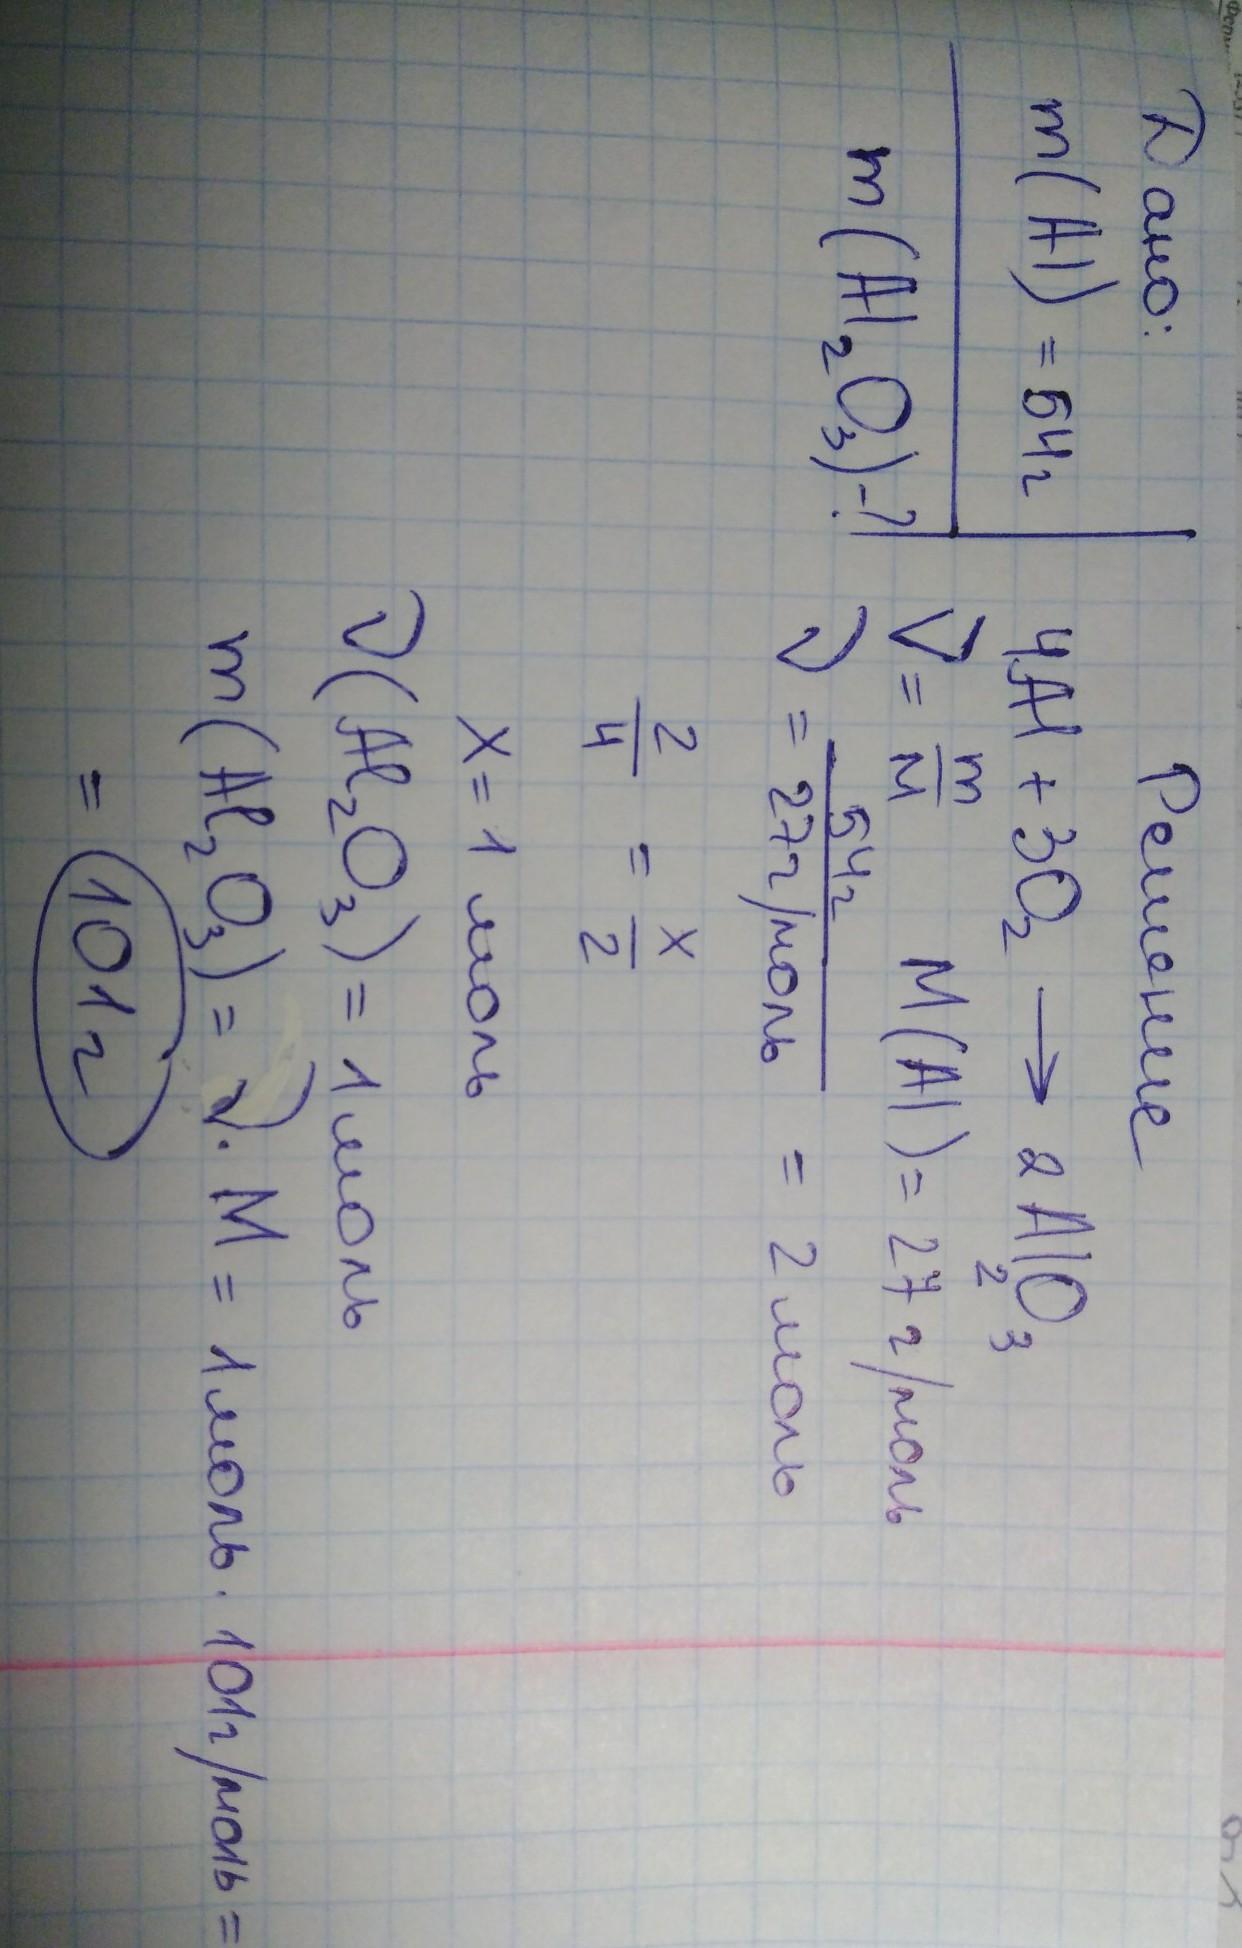 Дано:
m(Al) = 54г
m(Al₂O₃)-?
Решение
4Al + 3O₂ → 2Al₂O₃
ν = m/M M(Al) = 27 г/моль
ν = 54г/27г/моль = 2 моль
2/4 = x/2
x = 1 моль
ν(Al₂O₃) = 1 моль
m(Al₂O₃) = ν · M = 1 моль · 101г/моль =
= 101г